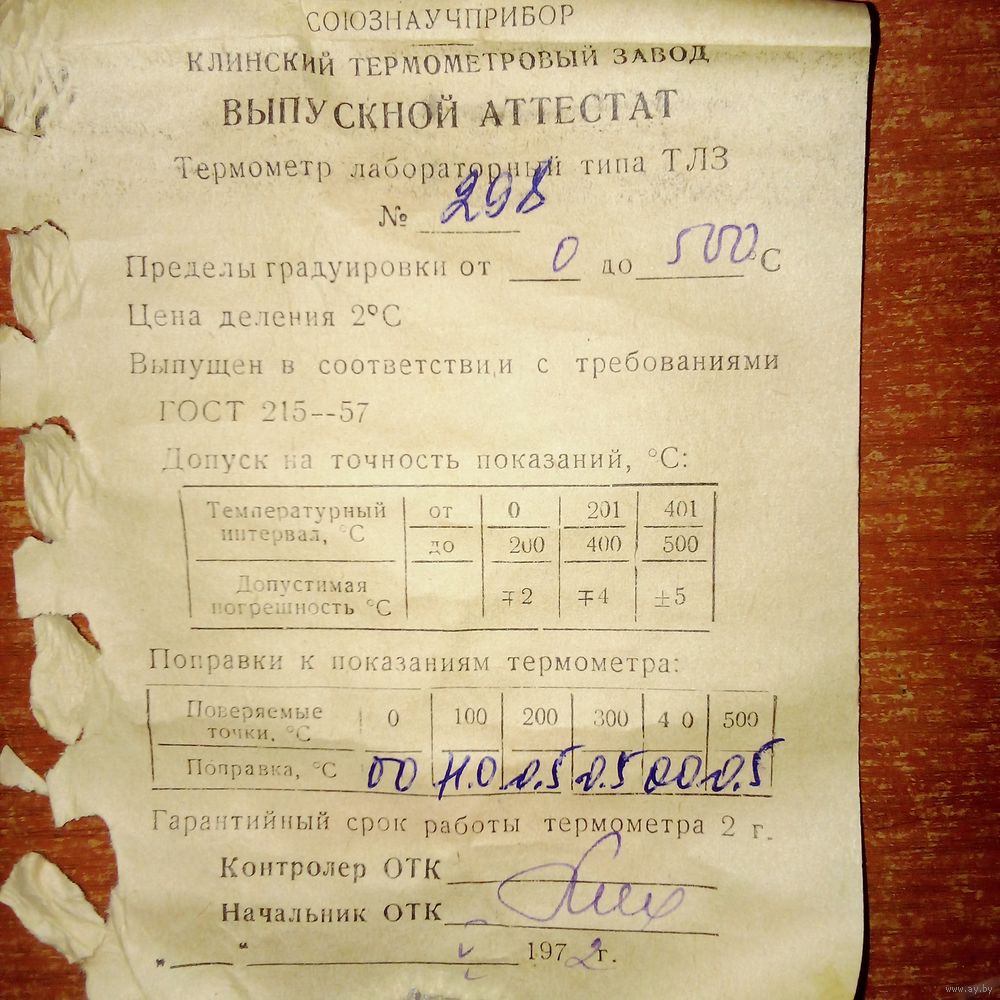 СОЮЗНАУЧПРИБОР
КЛИНСКИЙ ТЕРМОМЕТРОВЫЙ ЗАВОД
ВЫПУСКНОЙ АТТЕСТАТ
Термометр лабораторный типа ТЛЗ
№ 298
Пределы градуировки от 0 до 500 °С
Цена деления 2°С
Выпущен в соответствии с требованиями
ГОСТ 215--57
Допуск на точность показаний, °С:
Температурный интервал, °С от 0 201 401
до 200 400 500
Допустимая погрешность °С ∓2 ∓4 ±5
Поправки к показаниям термометра:
Поверяемые точки, °С 0 100 200 300 4 0 500
Поправка, °С 00 0.5 0.5 00 0.5
Гарантийный срок работы термометра 2 г.
Контролер ОТК
Начальник ОТК
„ “ 1972г.
www.ay.by